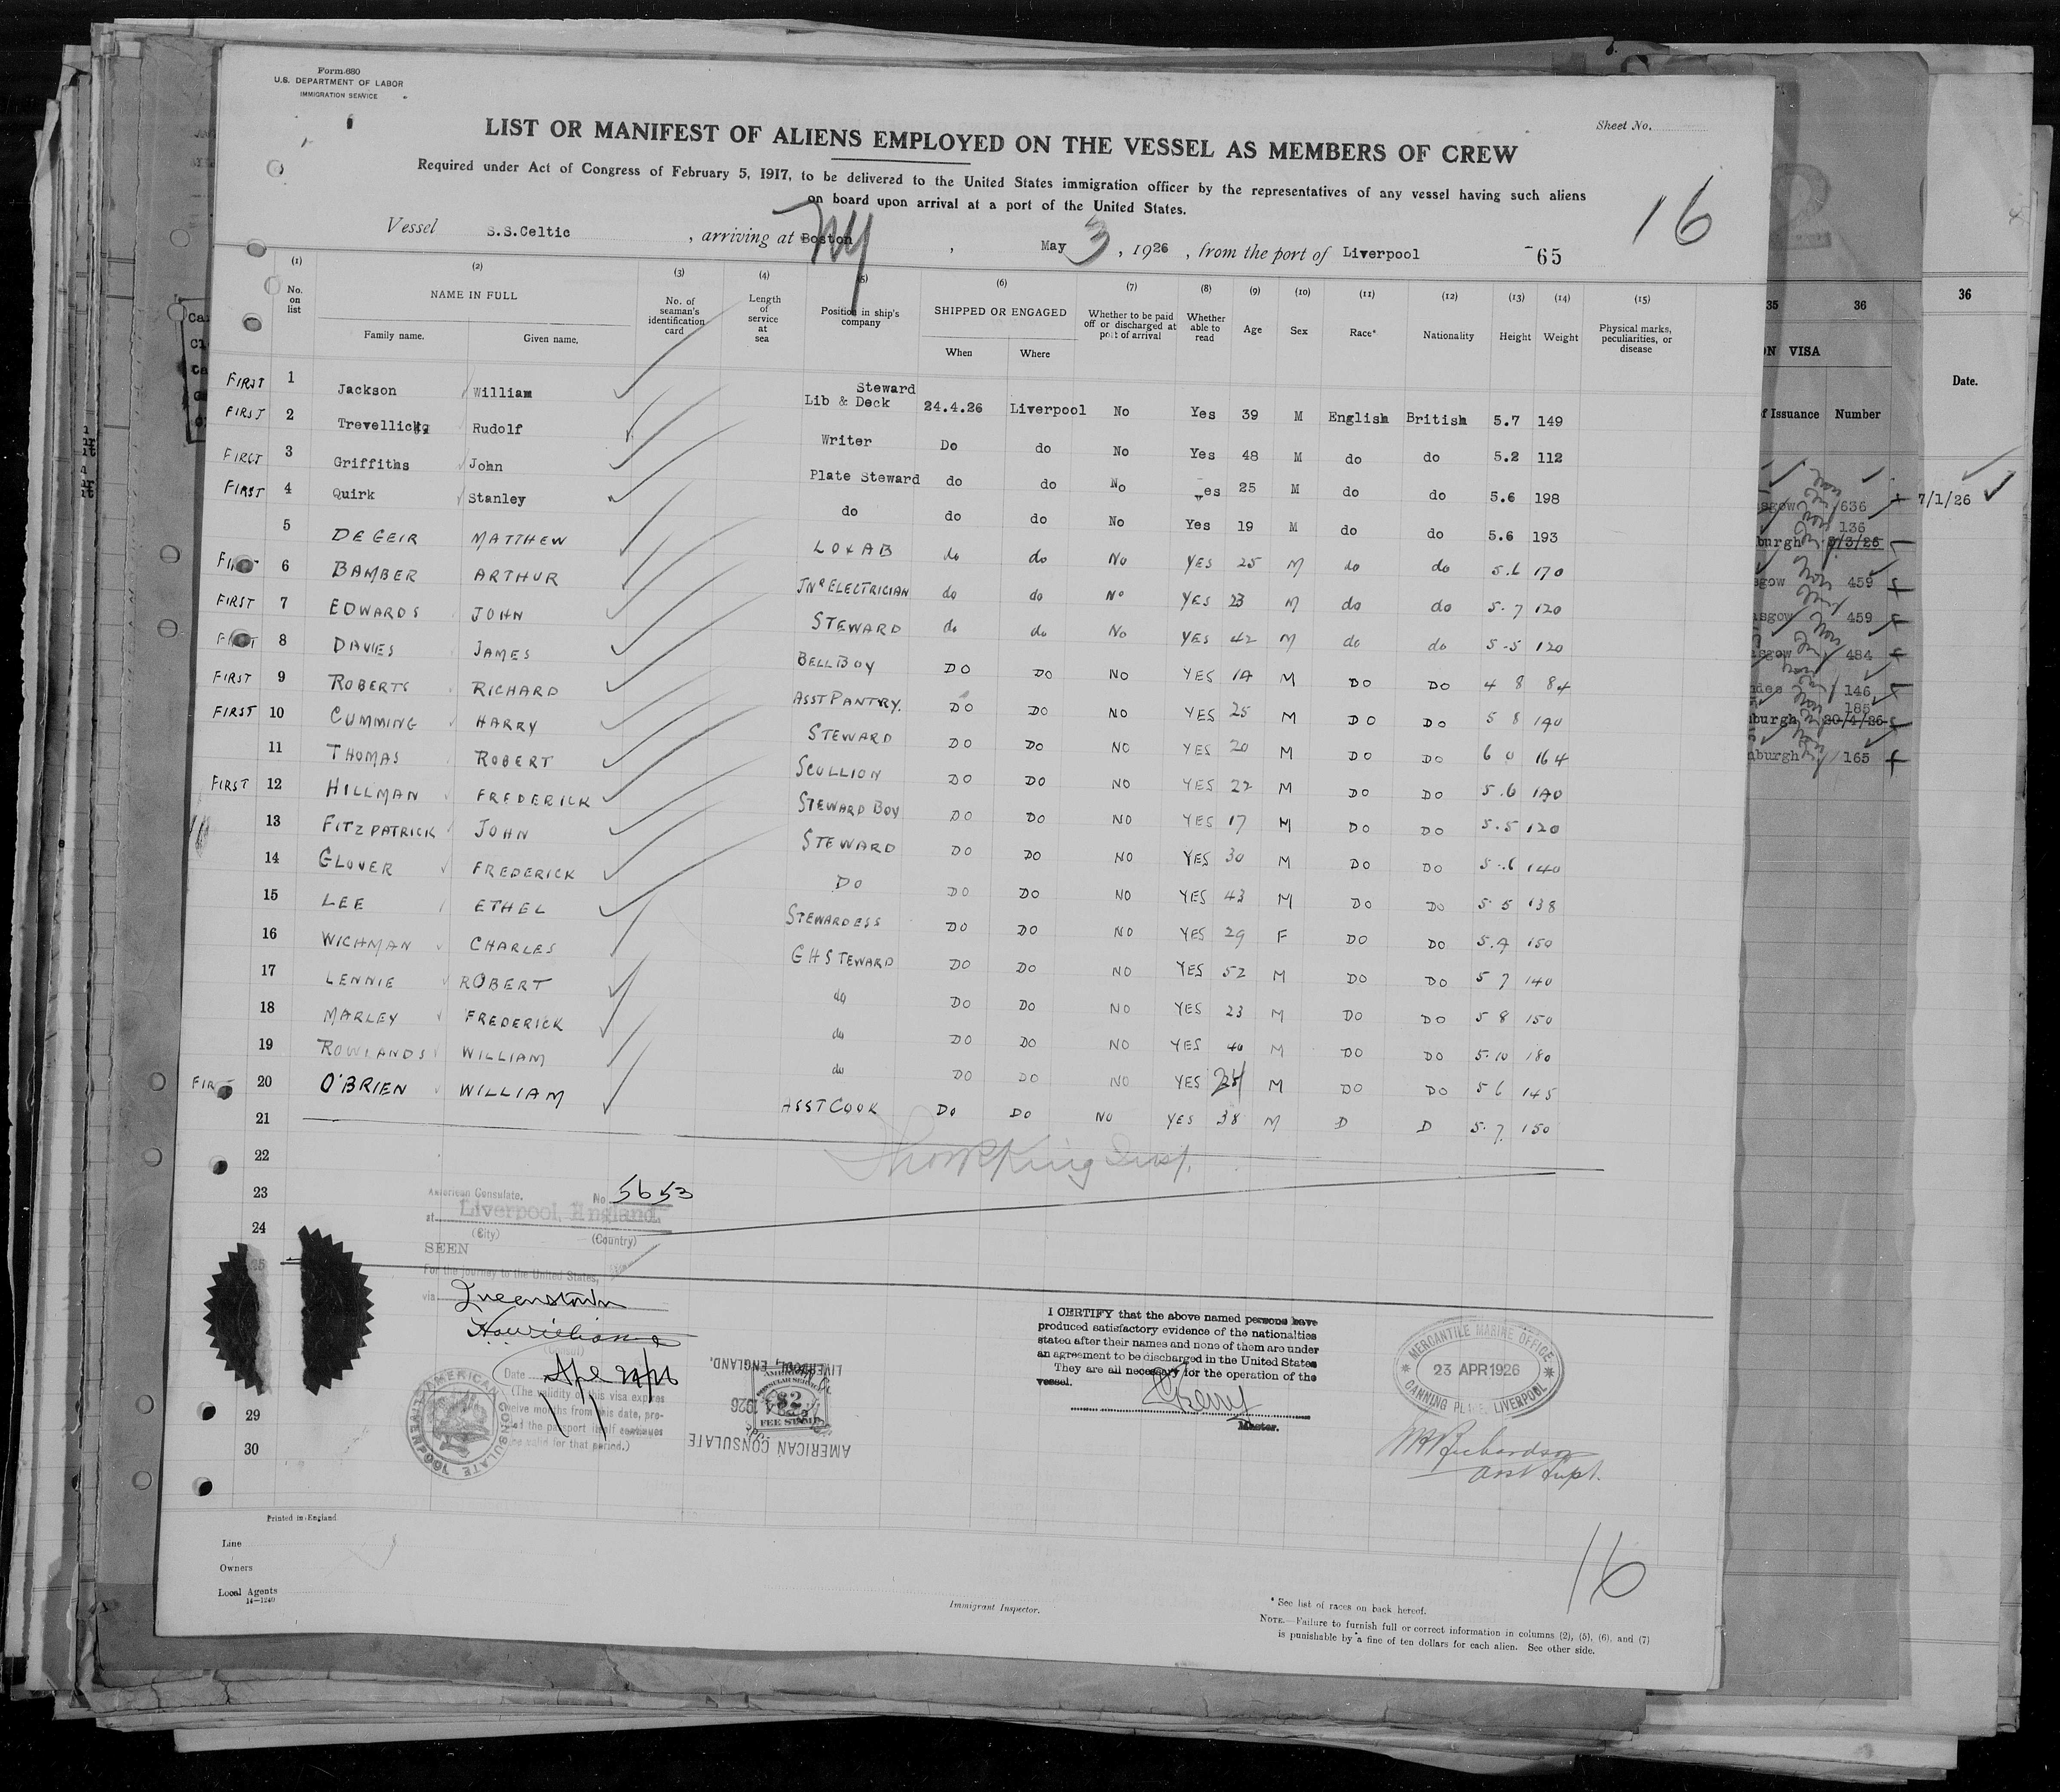 Form 680
U.S. DEPARTMENT OF LABOR
IMMIGRATION SERVICE
Sheet No.
LIST OR MANIFEST OF ALIENS EMPLOYED ON THE VESSEL AS MEMBERS OF CREW
Required under Act of Congress of February 5, 1917, to be delivered to the United States immigration officer by the representatives of any vessel having such aliens
on board upon arrival at a port of the United States.
16
Vessel S.S.Celtic , arriving at Boston NY , May 3 , 1926 , from the port of Liverpool 65
(1) (2) (3) (4) (5) (6) (7) (8) (9) (10) (11) (12) (13) (14) (15)
No. on list NAME IN FULL Family name. Given name. No. of seaman's identification card Length of service at sea Position in ship's company SHIPPED OR ENGAGED When Where Whether to be paid off or discharged at port of arrival Whether able to read Age Sex Race* Nationality Height Weight Physical marks, peculiarities, or disease
FIRST 1 Jackson William Steward Lib & Deck 24.4.26 Liverpool No Yes 39 M English British 5.7 149
FIRST 2 Rudolf Writer Do do No Yes 48 M do do 5.2 112
FIRST 3 Griffiths John Plate Steward do do No Yes 25 M do do 5.6 198
FIRST 4 Quirk Stanley do do do No Yes 19 M do do 5.6 193
5 DE GEIR MATTHEW do do No YES 25 M do do 5.6 170
FIRST 6 BAMBER ARTHUR JNR ELECTRICIAN do do No YES 23 M do do 5.7 120
FIRST 7 EDWARDS JOHN STEWARD do do No YES 42 M do do 5-5 120
FIRST 8 DAVIES JAMES BELL BOY DO DO NO YES 14 M DO DO 4 8 84
FIRST 9 ROBERTS RICHARD ASST PANTRY. DO DO NO YES 25 M DO DO 5 8 140
FIRST 10 CUMMING HARRY STEWARD DO DO NO YES 20 M DO DO 6 0 164
11 THOMAS ROBERT SCULLION DO DO NO YES 22 M DO DO 5.6 140
FIRST 12 HILLMAN FREDERICK STEWARD BOY DO DO NO YES 17 M DO DO 5.5 120
13 FITZPATRICK JOHN STEWARD DO DO NO YES 30 M DO DO 5.6 140
14 GLOVER FREDERICK DO DO DO NO YES 43 M DO DO 5 5 138
15 LEE ETHEL STEWARDESS DO DO NO YES 29 F DO DO 5.4 150
16 WICHMAN CHARLES G H STEWARD DO DO NO YES 52 M DO DO 5 7 140
17 LENNIE ROBERT do DO DO NO YES 23 M DO DO 5 8 150
18 MARLEY FREDERICK do DO DO NO YES 40 M DO DO 5.10 180
19 ROWLANDS WILLIAM do DO DO NO YES M DO DO 5 6 145
FIRST 20 O'BRIEN WILLIAM ASST COOK DO DO NO YES 38 M D D 5.7. 150
21
22
23
24
25
29
30
American Consulate, No. 5653
at Liverpool, England.
(City) (Country)
SEEN
For the journey to the United States,
via Queenstown
(Consul)
Date
(The validity of this visa expires
twelve months from this date, pro-
the passport itself continues
be valid for that period.)
AMERICAN CONSULATE
LIVERPOOL
AMERICAN
CONSULAR SERVICE
$2
FEE STAMP
LIVERPOOL, ENGLAND.
1926
AMERICAN CONSULATE
I CERTIFY that the above named persons have
produced satisfactory evidence of the nationalties
stated after their names and none of them are under
an agreement to be discharged in the United States
They are all necessary for the operation of the
vessel.
Master.
MERCANTILE MARINE OFFICE
23 APR 1926
CANNING PLACE, LIVERPOOL
Richardson
Asst Supt.
Printed in England
Line
Owners
Local Agents
14—1240
Immigrant Inspector.
16
* See list of races on back hereof.
NOTE.—Failure to furnish full or correct information in columns (2), (5), (6), and (7)
is punishable by a fine of ten dollars for each alien. See other side.
35 36
VISA
Issuance Number
636
136
burgh 9/3/26
459
459
484
146
185
burgh 20/4/26
burgh 165
36
Date.
7/1/26